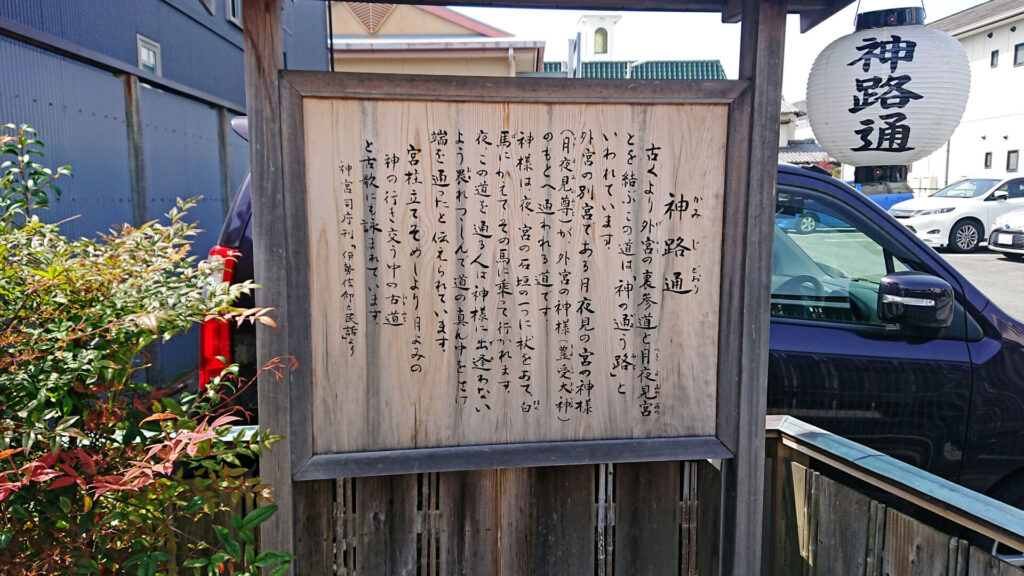 神路通
かみじどおり
古くより外宮の裏参道と月夜見宮
とを結ぶこの道は、「神の通う路」と
いわれています。
外宮の別宮である月夜見の宮の神様
(月夜見尊)が、外宮の神様(豊受大神)
のもとへ通われる道です
神様は、夜、宮の石垣の一つに杖をあて、白
馬にかえて その馬に乗って行かれます。
夜、この道を通る人は 神様に出逢わない
よう畏れつつしんで 道の真ん中をさけ
端を通ったと伝えられています。
宮柱立てそめしより月よみの
神の行き交う中の古道
と古歌にも詠まれています
神宮司庁刊「伊勢信仰と民話」より
神路通